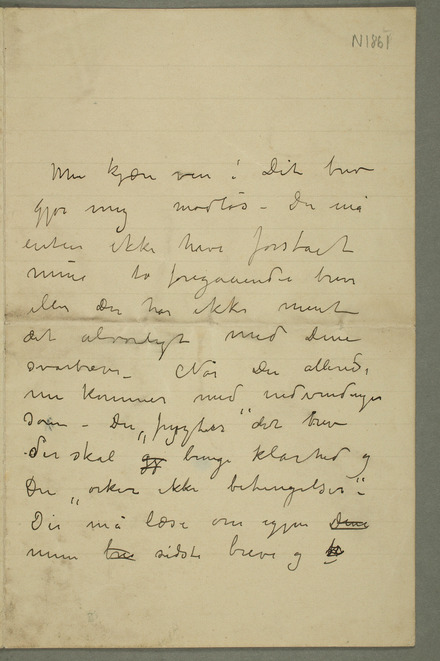 N1861
Min kjære ven! Dit brev
gjør mig modløs – Du må
enten ikke have forstaaet
mine to foregaaende brev
eller du har ikke ment
det alvorligt med dine
svarbreve – Når Du allerede
nu kommer med indvendinger
som – Du „frygter" det brev
der skal bringe klarhed og
Du „orker ikke betingelser" –
Du må læse om igjen dine
mine sidste breve og